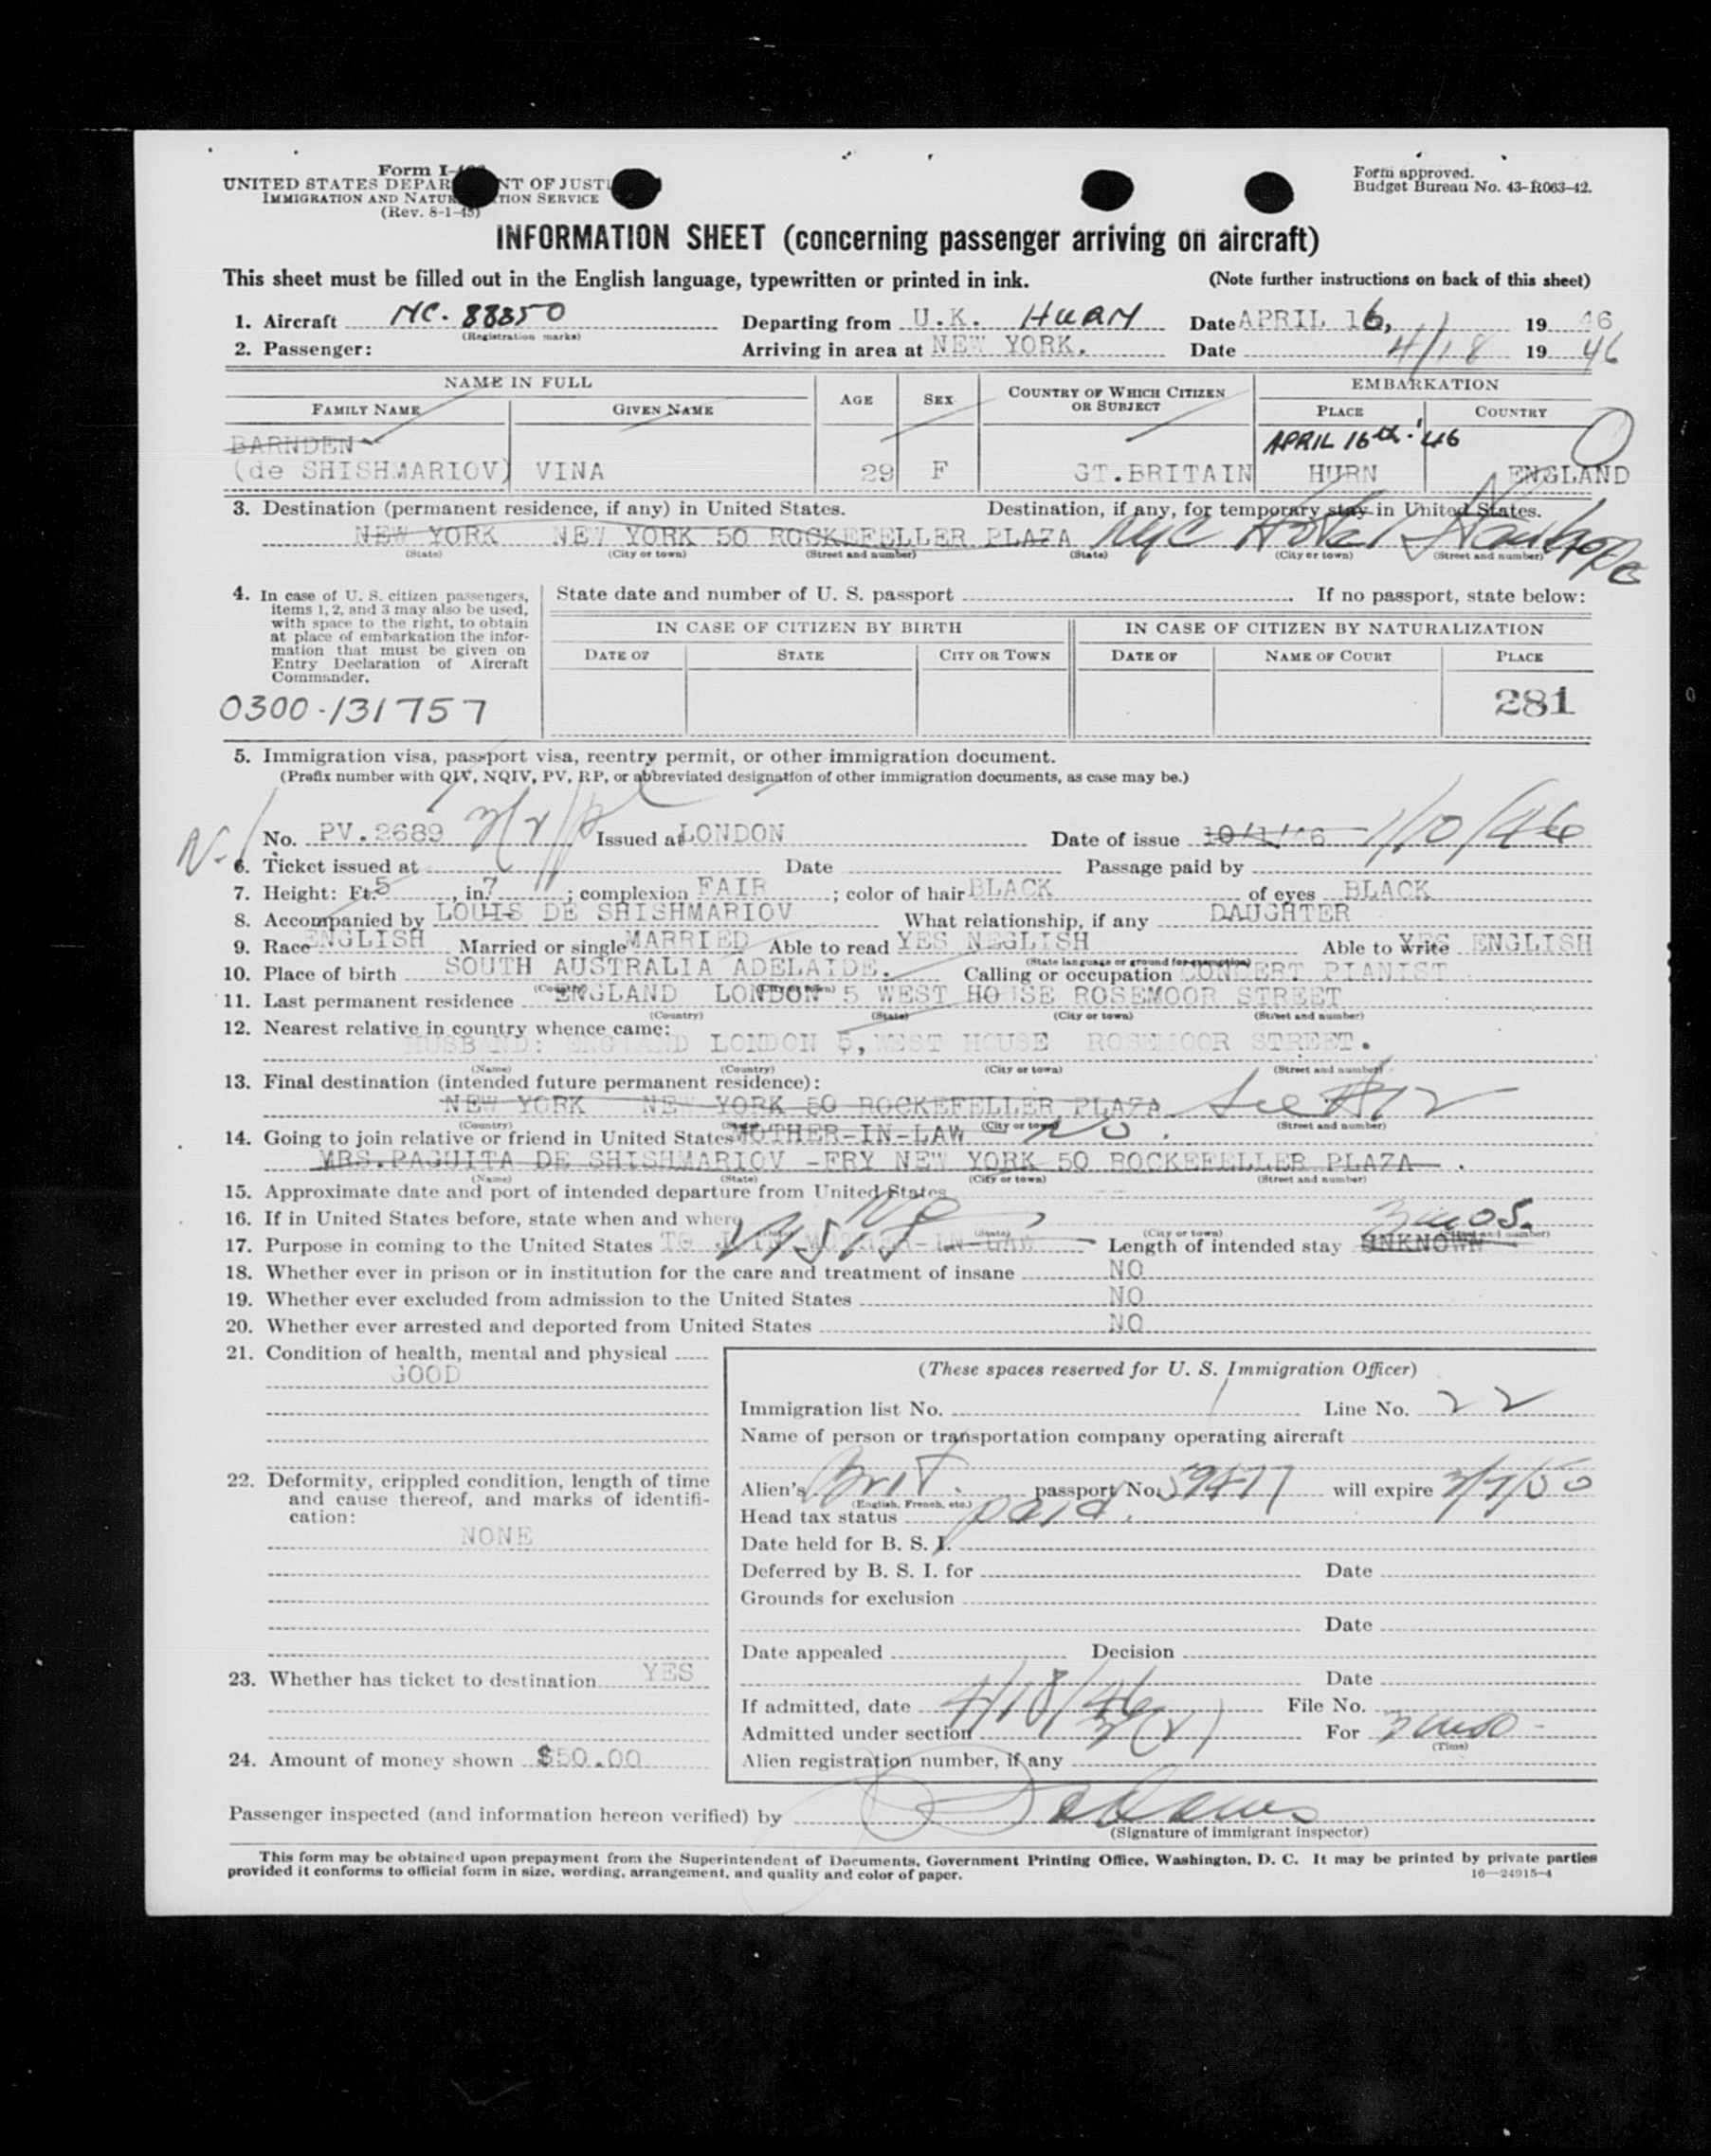 Form I-
UNITED STATES DEPAR NT OF JUSTI
IMMIGRATION AND NATUR TION SERVICE
(Rev. 8-1-45)
Form approved.
Budget Bureau No. 43-R063-42.
INFORMATION SHEET (concerning passenger arriving on aircraft)
This sheet must be filled out in the English language, typewritten or printed in ink. (Note further instructions on back of this sheet)
1. Aircraft NC. 88850 Departing from U.K. HURN Date APRIL 16, 1946
(Registration marks)
2. Passenger: Arriving in area at NEW YORK. Date 4/18 1946
NAME IN FULL AGE SEX COUNTRY OF WHICH CITIZEN OR SUBJECT EMBARKATION
FAMILY NAME GIVEN NAME PLACE COUNTRY
BARNDEN APRIL 16th '46
(de SHISHMARIOV) VINA 29 F GT.BRITAIN HURN ENGLAND
3. Destination (permanent residence, if any) in United States. Destination, if any, for temporary stay in United States.
NEW YORK NEW YORK 50 ROCKEFELLER PLAZA NYC Hotel Stanhope
(State) (City or town) (Street and number) (State) (City or town) (Street and number)
4. In case of U. S. citizen passengers, items 1, 2, and 3 may also be used, with space to the right, to obtain at place of embarkation the information that must be given on Entry Declaration of Aircraft Commander.
State date and number of U. S. passport If no passport, state below:
IN CASE OF CITIZEN BY BIRTH IN CASE OF CITIZEN BY NATURALIZATION
DATE OF STATE CITY OR TOWN DATE OF NAME OF COURT PLACE
0300-131757 281
5. Immigration visa, passport visa, reentry permit, or other immigration document.
(Prefix number with QIV, NQIV, PV, RP, or abbreviated designation of other immigration documents, as case may be.)
No. PV.2689 Issued at LONDON Date of issue 10/1/46 1/10/46
6. Ticket issued at Date Passage paid by
7. Height: Ft. 5, in. 7; complexion FAIR; color of hair BLACK of eyes BLACK
8. Accompanied by LOUIS DE SHISHMARIOV What relationship, if any DAUGHTER
9. Race ENGLISH Married or single MARRIED Able to read YES NEGLISH Able to write YES ENGLISH
(State language or ground for exemption)
10. Place of birth SOUTH AUSTRALIA ADELAIDE. Calling or occupation CONCERT PIANIST
(Country) (City or town)
11. Last permanent residence ENGLAND LONDON 5 WEST HOUSE ROSEMOOR STREET
(Country) (State) (City or town) (Street and number)
12. Nearest relative in country whence came:
HUSBAND: ENGLAND LONDON 5, WEST HOUSE ROSEMOOR STREET.
(Name) (Country) (City or town) (Street and number)
13. Final destination (intended future permanent residence):
NEW YORK NEW YORK 50 ROCKEFELLER PLAZA See #12
(Country) (State) (City or town) (Street and number)
14. Going to join relative or friend in United States MOTHER-IN-LAW No.
MRS.PAGUITA DE SHISHMARIOV -FRY NEW YORK 50 ROCKEFELLER PLAZA .
(Name) (State) (City or town) (Street and number)
15. Approximate date and port of intended departure from United States --
16. If in United States before, state when and where No
(State) (City or town) (Street and number)
17. Purpose in coming to the United States TO JOIN MOTHER-IN-LAW Visit Length of intended stay UNKNOWN 3 mos.
18. Whether ever in prison or in institution for the care and treatment of insane NO
19. Whether ever excluded from admission to the United States NO
20. Whether ever arrested and deported from United States NO
21. Condition of health, mental and physical
GOOD
22. Deformity, crippled condition, length of time and cause thereof, and marks of identification:
NONE
23. Whether has ticket to destination YES
24. Amount of money shown $50.00
(These spaces reserved for U. S. Immigration Officer)
Immigration list No. 1 Line No. 22
Name of person or transportation company operating aircraft
Alien's Brit. passport No. 59477 will expire 3/7/50
(English, French, etc.)
Head tax status paid.
Date held for B. S. I.
Deferred by B. S. I. for Date
Grounds for exclusion
Date
Date appealed Decision
Date
If admitted, date 4/18/46 File No.
Admitted under section 3(2) For 3 mos
(Time)
Alien registration number, if any
Passenger inspected (and information hereon verified) by
(Signature of immigrant inspector)
This form may be obtained upon prepayment from the Superintendent of Documents, Government Printing Office, Washington, D. C. It may be printed by private parties
provided it conforms to official form in size, wording, arrangement, and quality and color of paper. 16—24915-4